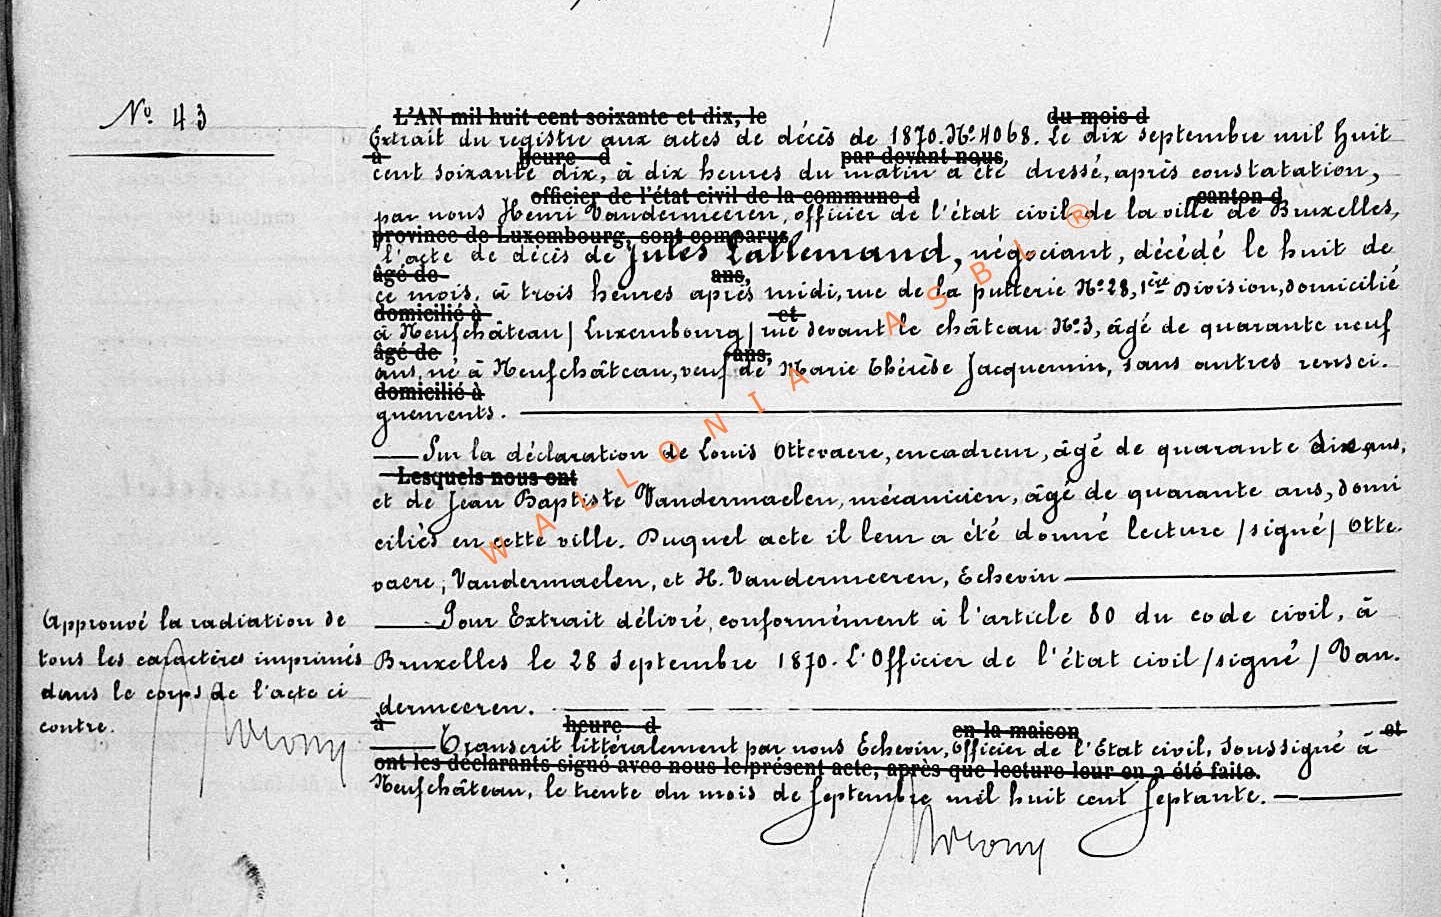 No. 43
L'AN mil huit cent soixante et dix, le du mois d
Extrait du registre aux actes de décès de 1870. No. 4068. Le dix septembre mil huit
à heure d par devant nous,
cent soixante dix, à dix heures du matin a été dressé, après constatation,
officier de l'état civil de la commune d canton d
par nous Henri Vandermeeren, officier de l'état civil de la ville de Bruxelles,
province de Luxembourg, sont comparus
l'acte de décès de Jules Lallemand, négociant, décédé le huit de
âgé de ans,
ce mois, à trois heures après midi, rue de la putterie No. 28, 1ère Division, domicilié
domicilié à et
à Neufchâteau / Luxembourg / rue devant le château No. 3, âgé de quarante neuf
âgé de ans,
ans, né à Neufchâteau, veuf de Marie Thérèse Jacquemin, sans autres rensei-
domicilié à
gnements.
Sur la déclaration de Louis Ottevaere, encadreur, âgé de quarante six ans,
Lesquels nous ont
et de Jean Baptiste Vandermaelen, mécanicien, âgé de quarante ans, domi
ciliés en cette ville. Duquel acte il leur a été donné lecture /signé/ Otte-
vaere, Vandermaelen, et H. Vandermeeren, Echevin
Pour Extrait délivré, conformément à l'article 80 du code civil, à
Bruxelles le 28 Septembre 1870. L'Officier de l'état civil /signé/ Van-
dermeeren.
à heure d en la maison et
Transcrit littéralement par nous Echevin, Officier de l'Etat civil, soussigné à
ont les déclarants signé avec nous le présent acte, après que lecture leur en a été faite.
Neufchâteau, le trente du mois de Septembre mil huit cent Septante.
Approuvé la radiation de
tous les caractères imprimés
dans le corps de l'acte ci
contre.
WALLONIA ASBL ®